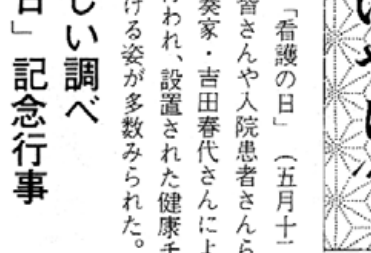 「看護の日」(五月十二
皆さんや入院患者さんら
奏家・吉田春代さんによ
行われ、設置された健康チ
ける姿が多数みられた。
しい調べ
日」記念行事